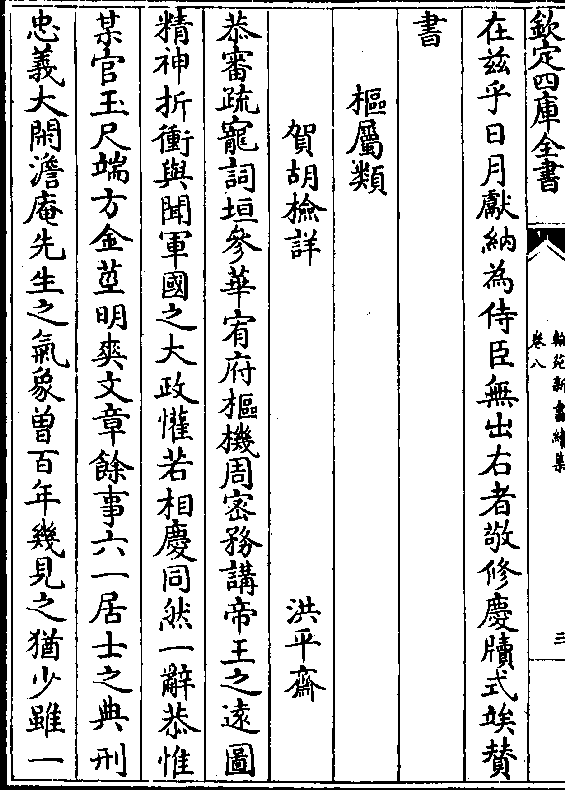 欽定四庫全書
翰苑新書續集
卷八
三
在兹乎日月獻納為侍臣無出右者敬修慶牘式竢贊
書
樞屬類
賀胡檢詳 洪平齋
恭審疏寵詞垣參華宥府樞機周宻務講帝王之遠圖
精神折衝與聞軍國之大政懽若相慶同然一辭恭惟
某官玉尺端方金莖明爽文章餘事六一居士之典刑
忠義大閑澹庵先生之氣象曽百年幾見之猶少雖一